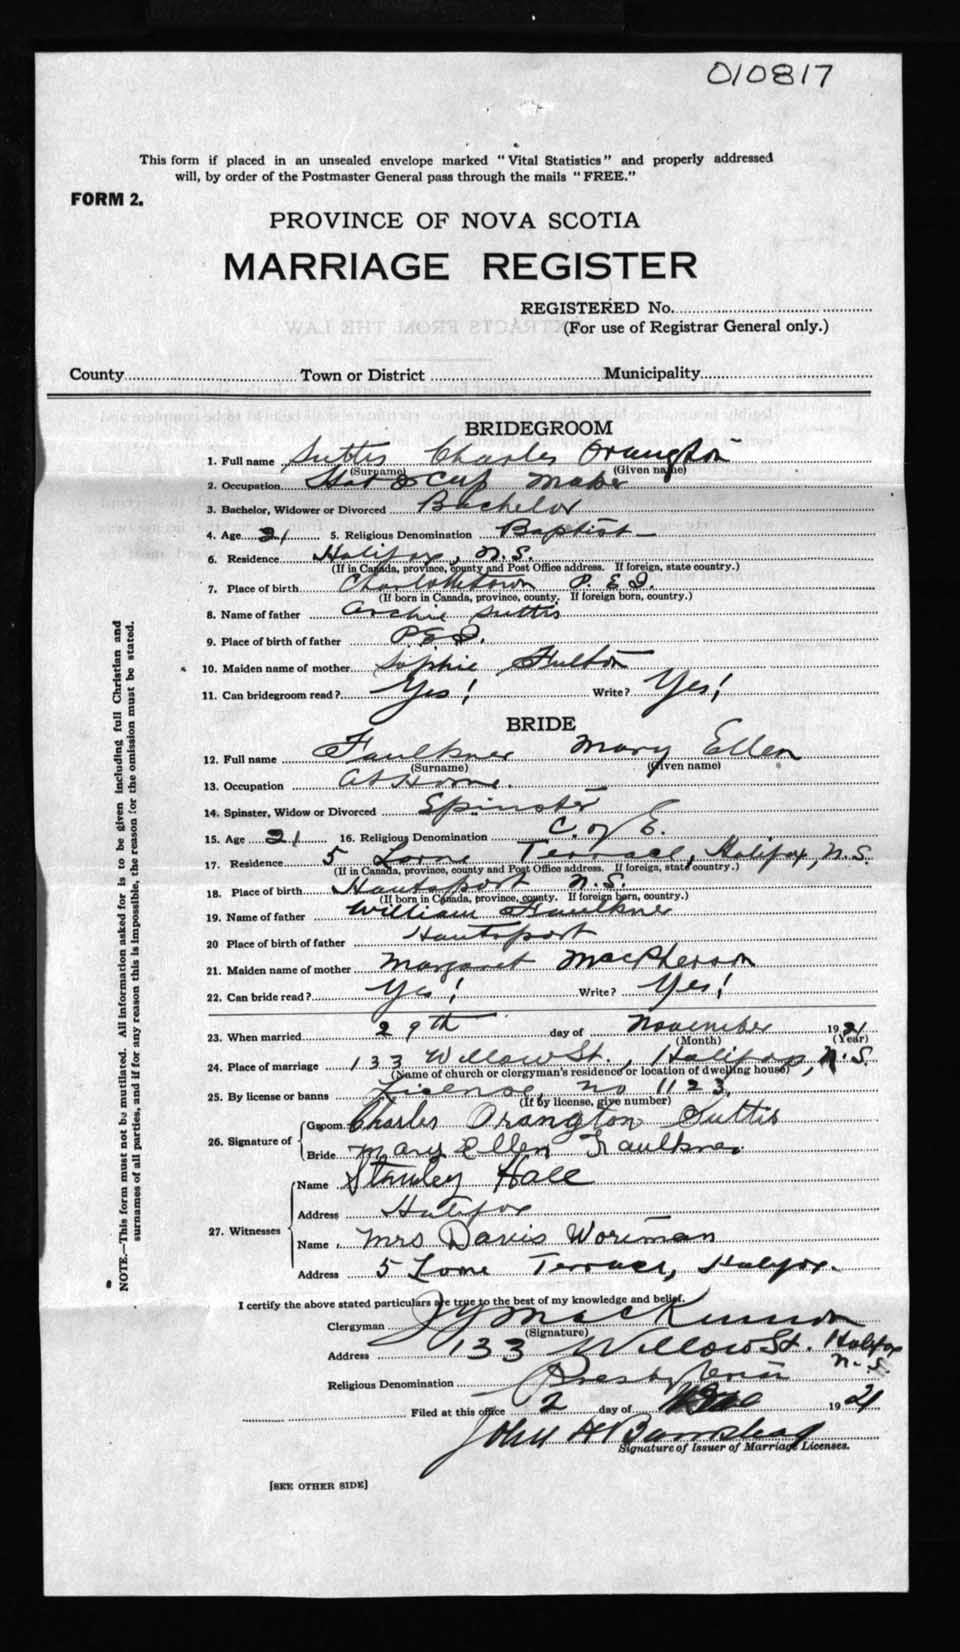 010817
This form if placed in an unsealed envelope marked "Vital Statistics" and properly addressed
will, by order of the Postmaster General pass through the mails "FREE."
FORM 2.
PROVINCE OF NOVA SCOTIA
MARRIAGE REGISTER
REGISTERED No.
(For use of Registrar General only.)
County Town or District Municipality
BRIDEGROOM
1. Full name Suttis Charles Orangton
(Surname) (Given name)
2. Occupation Hat & Cap Maker
3. Bachelor, Widower or Divorced Bachelor
4. Age 21 5. Religious Denomination Baptist
6. Residence Halifax, N.S.
(If in Canada, province, county and Post Office address. If foreign, state country.)
7. Place of birth Charlottetown P.E.I.
(If born in Canada, province, county. If foreign born, country.)
8. Name of father Archie Suttis
9. Place of birth of father P.E.I.
10. Maiden name of mother Sophie Fulton
11. Can bridegroom read? Yes! Write? Yes!
BRIDE
12. Full name Faulkner Mary Ellen
(Surname) (Given name)
13. Occupation At Home.
14. Spinster, Widow or Divorced Spinster
15. Age 21 16. Religious Denomination C. of E.
17. Residence 5 Lorne Terrace, Halifax, N.S.
(If in Canada, province, county and Post Office address. If foreign, state country.)
18. Place of birth Hantsport N.S.
(If born in Canada, province, county. If foreign born, country.)
19. Name of father William Faulkner
20 Place of birth of father Hantsport
21. Maiden name of mother Margaret MacPherson
22. Can bride read? Yes! Write? Yes!
23. When married 29th day of November 1921
(Month) (Year)
24. Place of marriage 133 Willow St., Halifax, N.S.
(Name of church or clergyman's residence or location of dwelling house)
25. By license or banns License, no 1123
(If by license, give number)
26. Signature of Groom Charles Orangton Suttis
Bride Mary Ellen Faulkner
27. Witnesses Name Stanley Hall
Address Halifax
Name Mrs Davis Workman
Address 5 Lorne Terrace, Halifax.
I certify the above stated particulars are true to the best of my knowledge and belief.
Clergyman MacKinnon
(Signature)
Address 133 Willow St. Halifax
N.S.
Religious Denomination Presbyterian
Filed at this office 2 day of Dec 1921
John A Barnstead
Signature of Issuer of Marriage Licenses.
[SEE OTHER SIDE]
NOTE.—This form must not be mutilated. All information asked for is to be given including full Christian and
surnames of all parties, and if for any reason this is impossible, the reason for the omission must be stated.